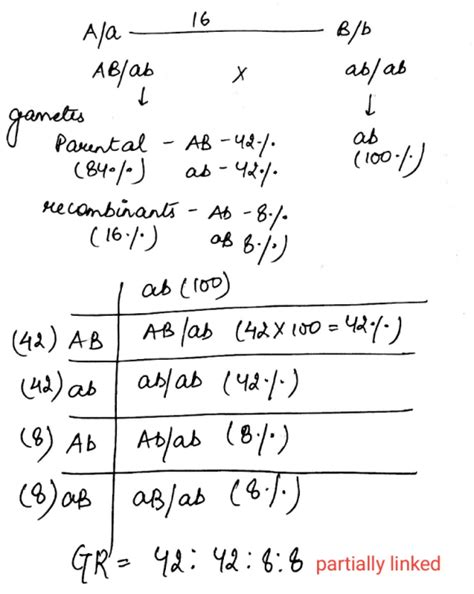 16
A/a B/b
AB/ab x ab/ab
↓ ↓
gametes
Parental - AB - 42% ab
(84%) ab - 42% (100%)
recombinants - Ab - 8%
(16%) aB 8%)
ab (100)
(42) AB AB/ab (42 x 100 = 42%)
(42) ab ab/ab (42%)
(8) Ab Ab/ab (8%)
(8) aB aB/ab (8%)
GR = 42 : 42 : 8 : 8 partially linked